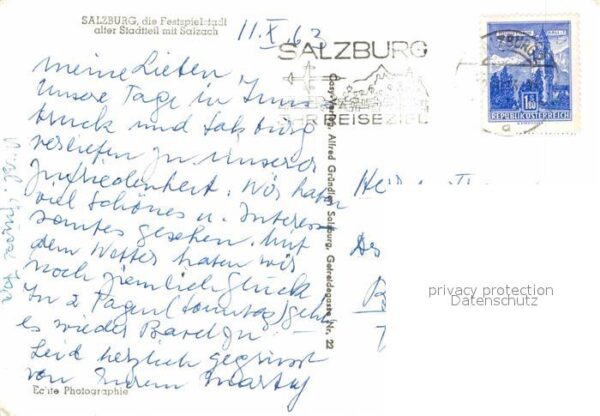 SALZBURG, die Festspielstadt
alter Stadtteil mit Salzach
11. X. 62
meine Lieben
Unsere Tage in Inns
bruck und Salzburg
verliefen zu unserer
Zufriedenheit. Wir haben
viel Schönes u. Interes
santes gesehen. Mit
dem Wetter haten wir
noch ziemlich Glück
In 2 Tagen (Sonntag) geht
es wieder Basel zu.
Seid herzlich gegrüsst
von Eurem
Echte Photographie
Herzl. Grüsse
Cosy-Verlag, Alfred Gründler, Salzburg, Getreidegasse Nr. 22
SALZBURG
IHR REISEZIEL
REPUBLIK ÖSTERREICH
Des
privacy protection
Datenschutz